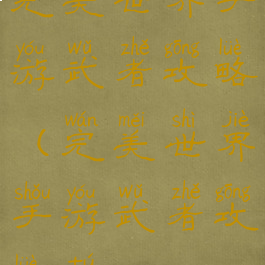 完美世界手
yóu wǔ zhě gōng lüè
游武者攻略
wán měi shì jiè
（完美世界
shǒu yóu wǔ zhě gōng
手游武者攻